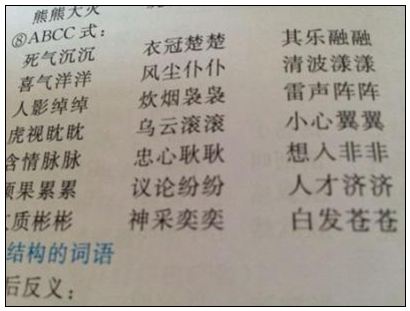 熊熊大火
⑧ABCC式：
死气沉沉 衣冠楚楚 其乐融融
喜气洋洋 风尘仆仆 清波漾漾
人影绰绰 炊烟袅袅 雷声阵阵
虎视眈眈 乌云滚滚 小心翼翼
含情脉脉 忠心耿耿 想入非非
果累累 议论纷纷 人才济济
质彬彬 神采奕奕 白发苍苍
结构的词语
后反义：